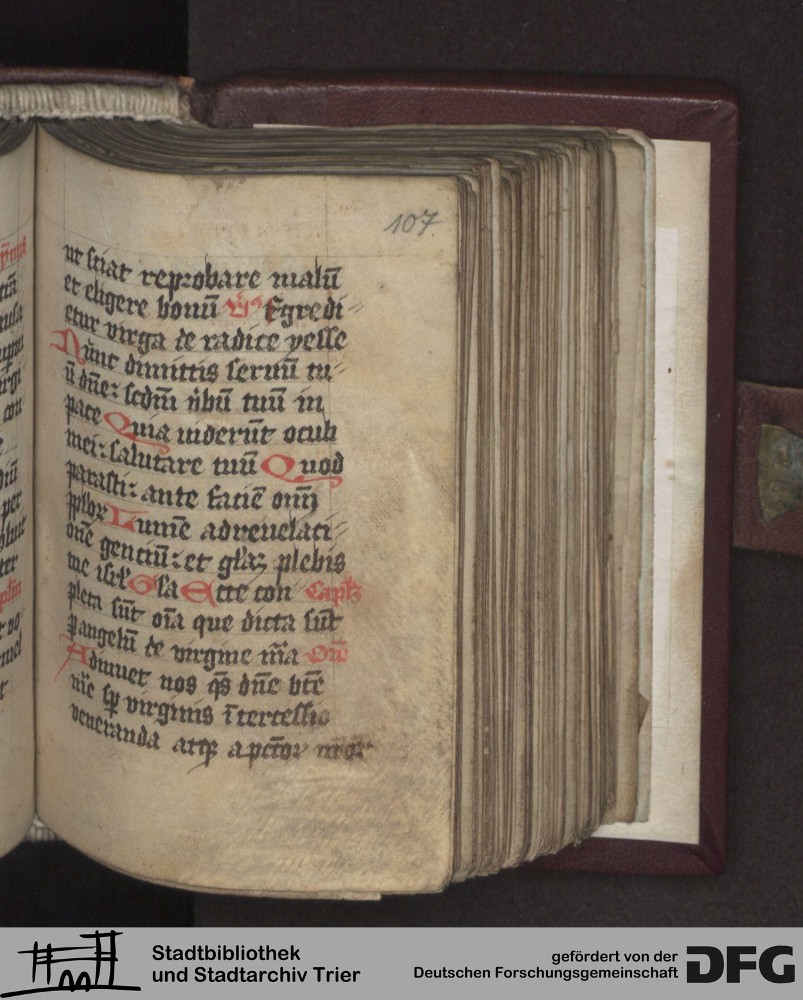 107
ut sciat reprobare malū
et eligere bonū v̄s Egredi⸗
etur virga de radice yesse
Nūnc dimittis seruū tu⸗
ū dn̄e: scdm̄ v̄bū tuū in
pace Quia uiderūt oculi
mei: salutare tuū Quod
parasti: ante faciē oīm
pp̄lor Lumē ad reuelaci⸗
onē genciū: et gl̄az plebis
tue isrl̄ Gl̄a Ecce con Capl̄m
pleta sūt oīa que dicta sūt
p̄ angelū de virgine m̄ia Orō
Adiuuet nos q̄s dn̄e bt̄e
m̄ie sp̄ virginis ītercessio
veneranda atq̄ a pctōr
Stadtbibliothek
und Stadtarchiv Trier
gefördert von der
Deutschen Forschungsgemeinschaft
DFG